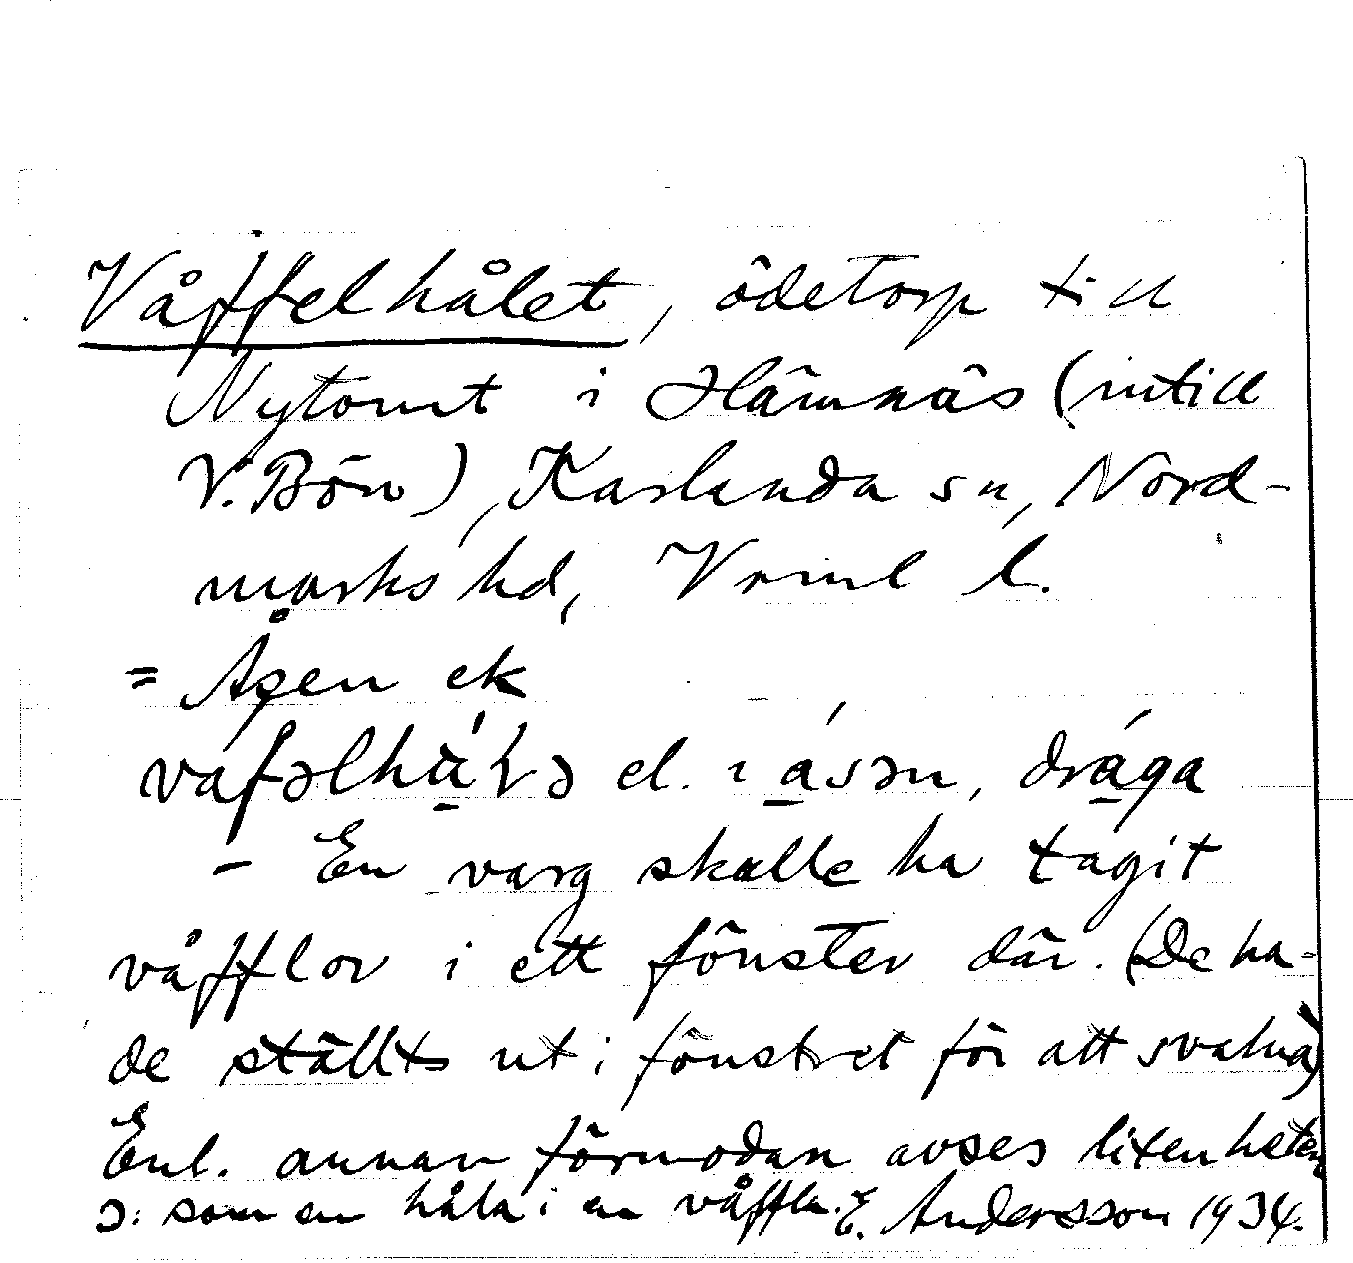 Våffelhålet, ödetorp till
Nytomt i Hämnäs (intill
V. Bön), Karlanda sn, Nord-
marks hd, Vrml l.
= Ågen ek
vafəlhàlə el. i ásən, drága
- En varg skalle ha tagit
våfflor i ett fönster där. (De ha-
de ställts ut i fönstret för att svalna)
Enl. annan förmodan avses litenheten
ɔ: som en håla i en våffla. E. Andersson 1934.